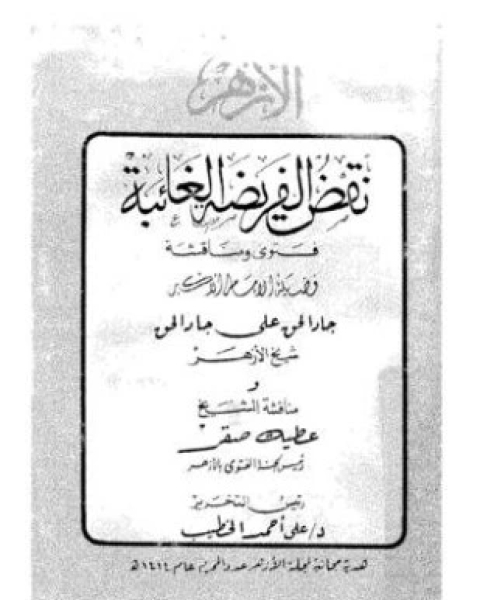 الأزهر
نقض الفريضة الغائبة
فتوى ومناقشة
فضيلة الإمام الأكبر
جاد الحق على جاد الحق
شيخ الأزهر
و
مناقشة الشيخ
عطية صقر
رئيس لجنة الفتوى بالأزهر
رئيس التحرير
د/على أحمد الخطيب
هدية مجانية لمجلة الأزهر عدد المحرم عام ١٤١٤ هـ